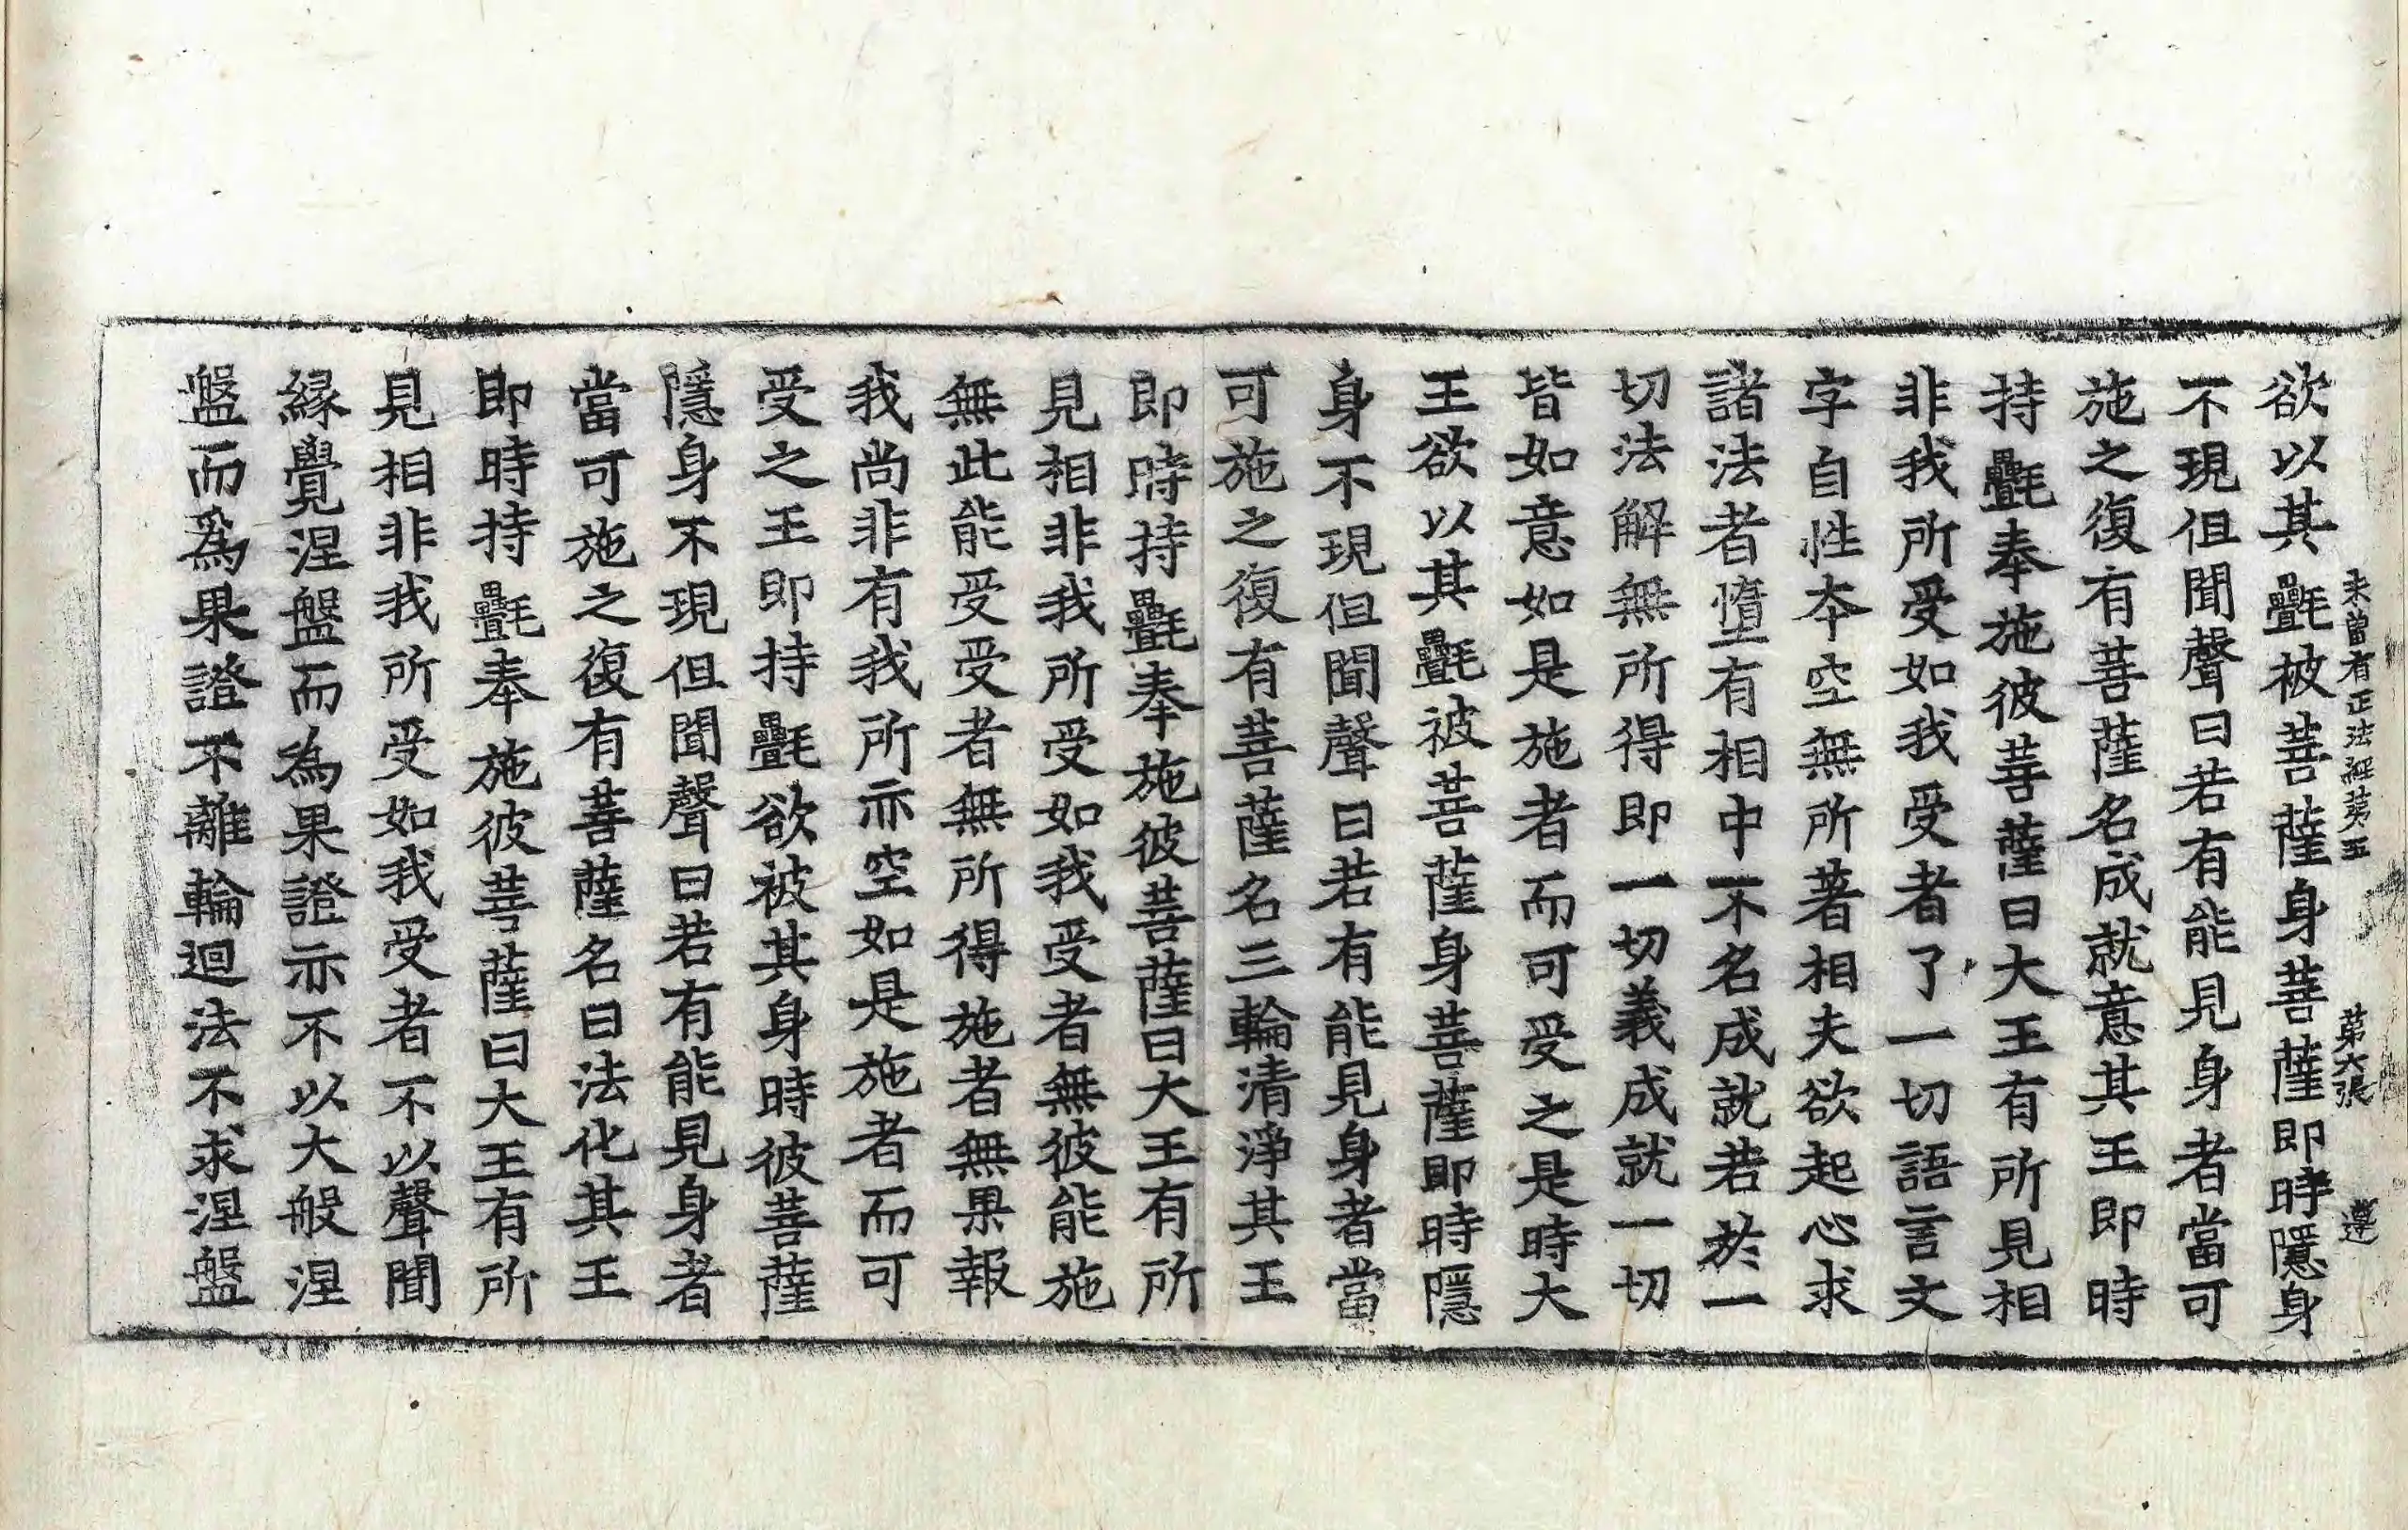 欲以其㲲被菩薩身菩薩即時隱身
未曾有正法經第五 第六張 遵
不現但聞聲曰若有能見身者當可
施之復有菩薩名成就意其王即時
持㲲奉施彼菩薩曰大王有所見相
非我所受如我受者了一切語言文
字自性本空無所著相夫欲起心求
諸法者墮有相中不名成就若於一
切法解無所得即一切義成就一切
皆如意如是施者而可受之是時大
王欲以其㲲被菩薩身菩薩即時隱
身不現但聞聲曰若有能見身者當
可施之復有菩薩名三輪清淨其王
即時持㲲奉施彼菩薩曰大王有所
見相非我所受如我受者無彼能施
無此能受受者無所得施者無果報
我尚非有我所亦空如是施者而可
受之王即持㲲欲被其身時彼菩薩
隱身不現但聞聲曰若有能見身者
當可施之復有菩薩名曰法化其王
即時持㲲奉施彼菩薩曰大王有所
見相非我所受如我受者不以聲聞
緣覺涅盤而為果證亦不以大般涅
盤而爲果證不離輪迴法不求涅盤